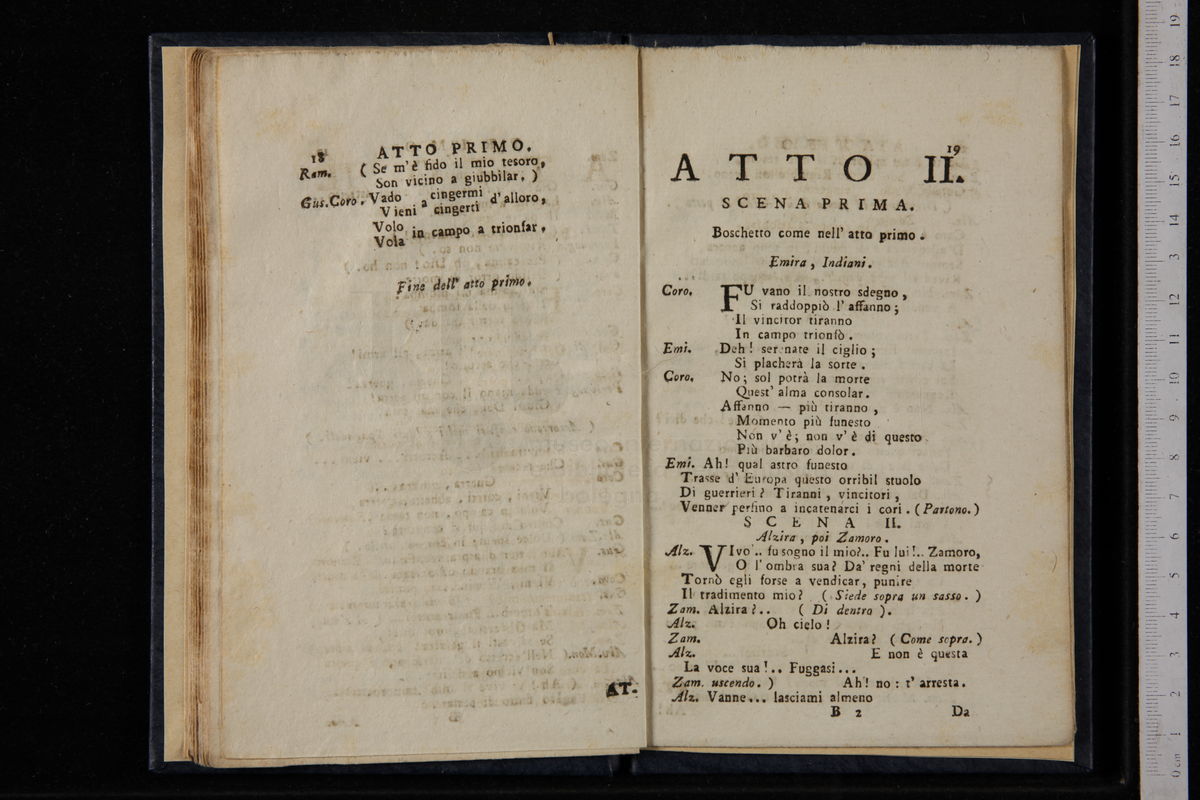 18 ATTO PRIMO.
Ram. ( Se m'è fido il mio tesoro,
Son vicino a giubbilar. )
Gus.Coro. Vado a cingermi d'alloro,
Vieni cingerti
Volo in campo a trionfar.
Vola
Fine dell' atto primo.
AT-
19
ATTO II.
SCENA PRIMA.
Boschetto come nell' atto primo.
Emira, Indiani.
Coro. FU vano il nostro sdegno,
Si raddoppiò l'affanno;
Il vincitor tiranno
In campo trionfò.
Emi. Deh! serenate il ciglio;
Si placherà la sorte.
Coro. No; sol potrà la morte
Quest' alma consolar.
Affanno — più tiranno,
Momento più funesto
Non v'è; non v'è di questo
Più barbaro dolor.
Emi. Ah! qual astro funesto
Trasse d' Europa questo orribil stuolo
Di guerrieri? Tiranni, vincitori,
Venner perfino a incatenarci i cori. (Partono.)
SCENA II.
Alzira, poi Zamoro.
Alz. VIvo.. fu sogno il mio?.. Fu lui!.. Zamoro,
O l'ombra sua? Da' regni della morte
Tornò egli forse a vendicar, punire
Il tradimento mio? (Siede sopra un sasso.)
Zam. Alzira?.. (Di dentro).
Alz. Oh cielo!
Zam. Alzira? (Come sopra.)
Alz. E non è questa
La voce sua!.. Fuggasi...
Zam. uscendo.) Ah! no: t'arresta.
Alz. Vanne... lasciami almeno
B 2 Da
0 cm 1 2 3 4 5 6 7 8 9 10 11 12 13 14 15 16 17 18 19